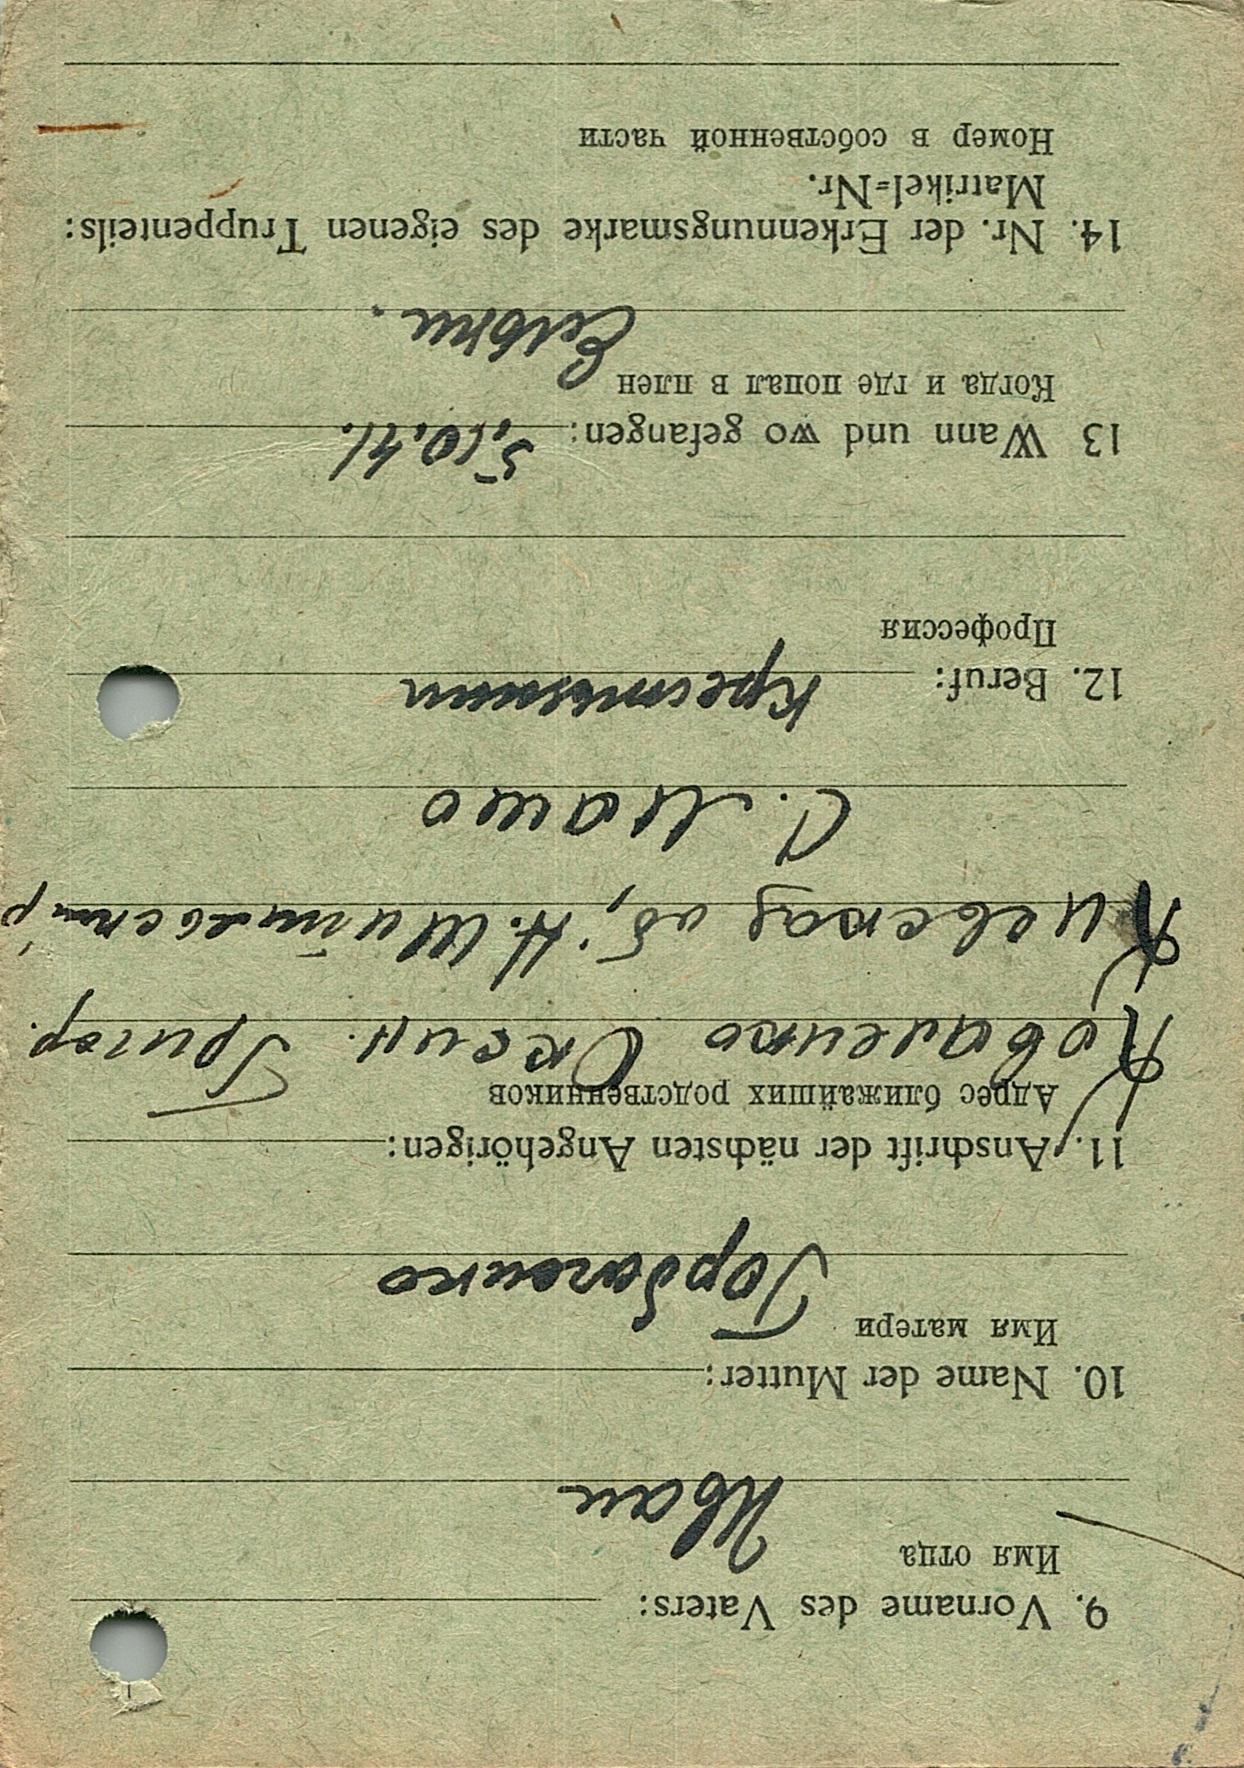 9. Vorname des Vaters:
Имя отца
Иван
10. Name der Mutter:
Имя матери
Горбаченко
11. Anschrift der nächsten Angehörigen:
Адрес ближайших родственников
Коваленко Оксин. Григор.
Киевская об,
С.
12. Beruf: крестьянин
Профессия
13 Wann und wo gefangen: 5.10.41.
Когда и где попал в плен
Ельни.
14. Nr. der Erkennungsmarke des eigenen Truppenteils:
Matrikel=Nr.
Номер в собственной части